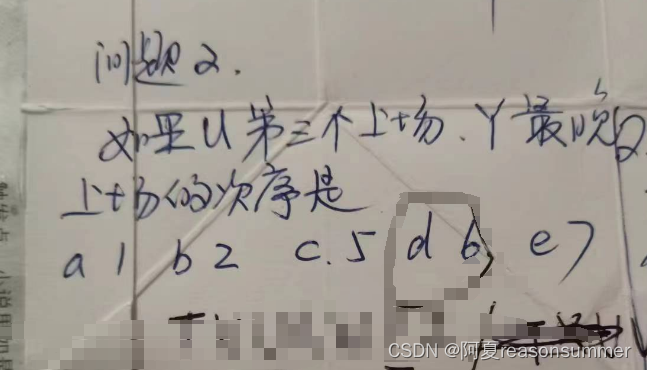 问题2.
如果U第三个上场.Y最晚
上场的次序是
a 1 b 2 c.5 d 6 e 7
CSDN @阿夏reasonsummer